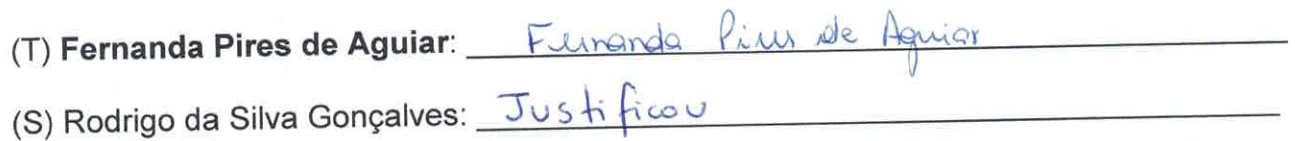 (T) Fernanda Pires de Aguiar: Fernanda Pires de Aguiar
(S) Rodrigo da Silva Gonçalves: Justificou